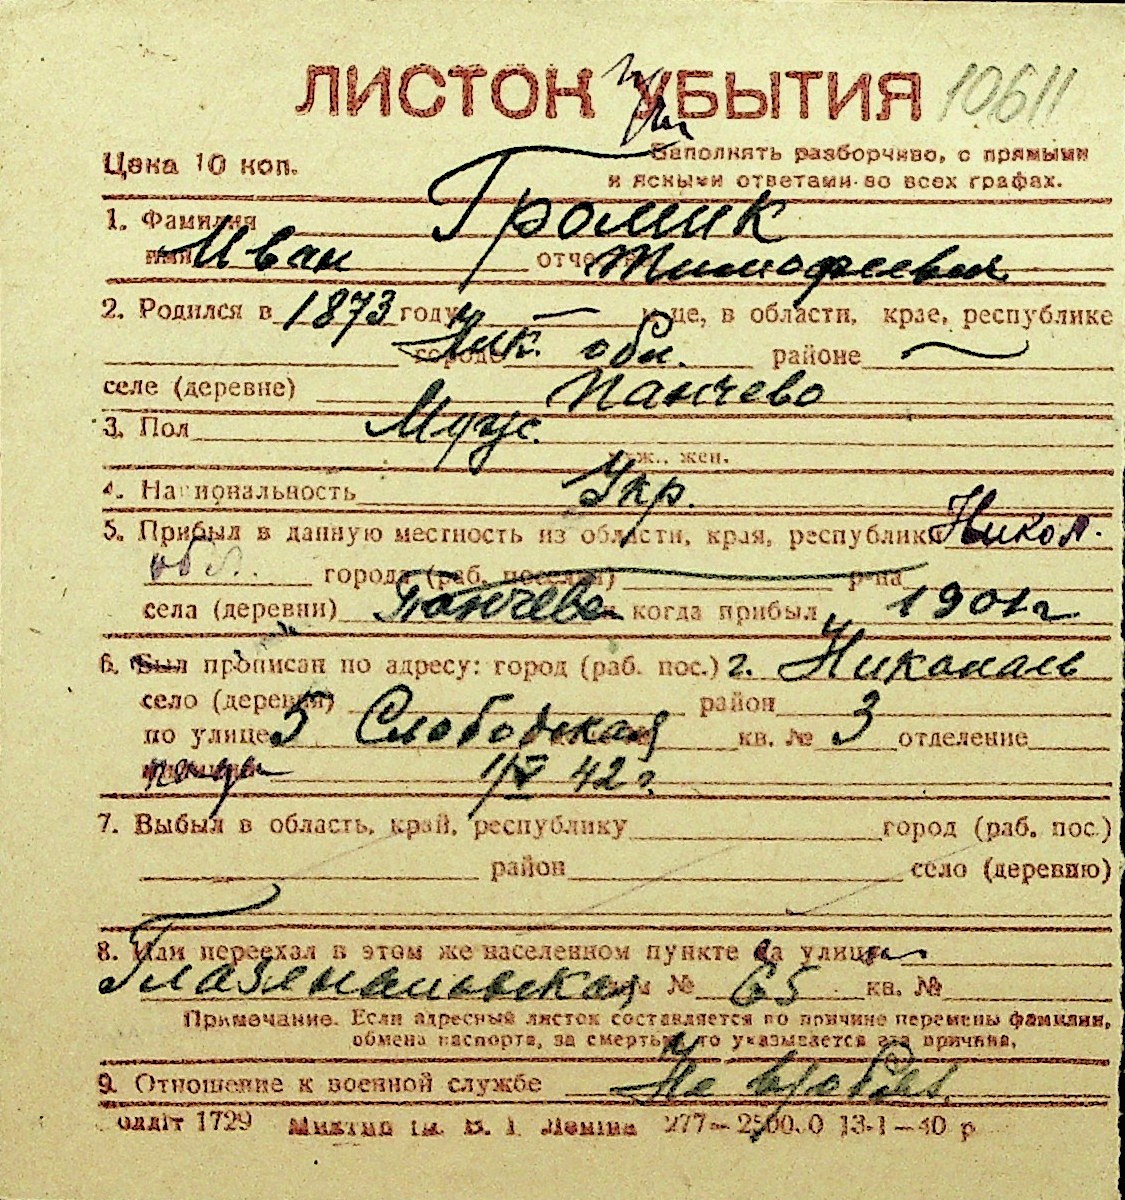 ЛИСТОК УБЫТИЯ 10611
при
Цена 10 коп.
Заполнять разборчиво, с прямыми
и ясными ответами во всех графах.
1. Фамилия Громик
имя Иван отчество Тимофеевич
2. Родился в 1873 году, в области, крае, республике
Ник. обл. городе районе
селе (деревне) Панчево
3. Пол Мужс.
муж., жен.
4. Национальность Укр.
5. Прибыл в данную местность из области, края, республики Никол.
обл. города (раб. поселка) р-на
села (деревни) Панчево и когда прибыл 1901 г
6. Был прописан по адресу: город (раб. пос.) г. Николаль
село (деревня) район
по улице 5 Слободская кв. № 3 отделение
1/V 42 г.
7. Выбыл в область, край, республику город (раб. пос.)
район село (деревню)
8. Или переехал в этом же населенном пункте на улицу
Глазенаповская дом № 65 кв. №
Примечание. Если адресный листок составляется по причине перемены фамилии,
обмена паспорта, за смертью, то указывается эта причина.
9. Отношение к военной службе Не
Облліт 1729 Миктип ім. В. І. Леніна 277—2500.0 13-1—40 р